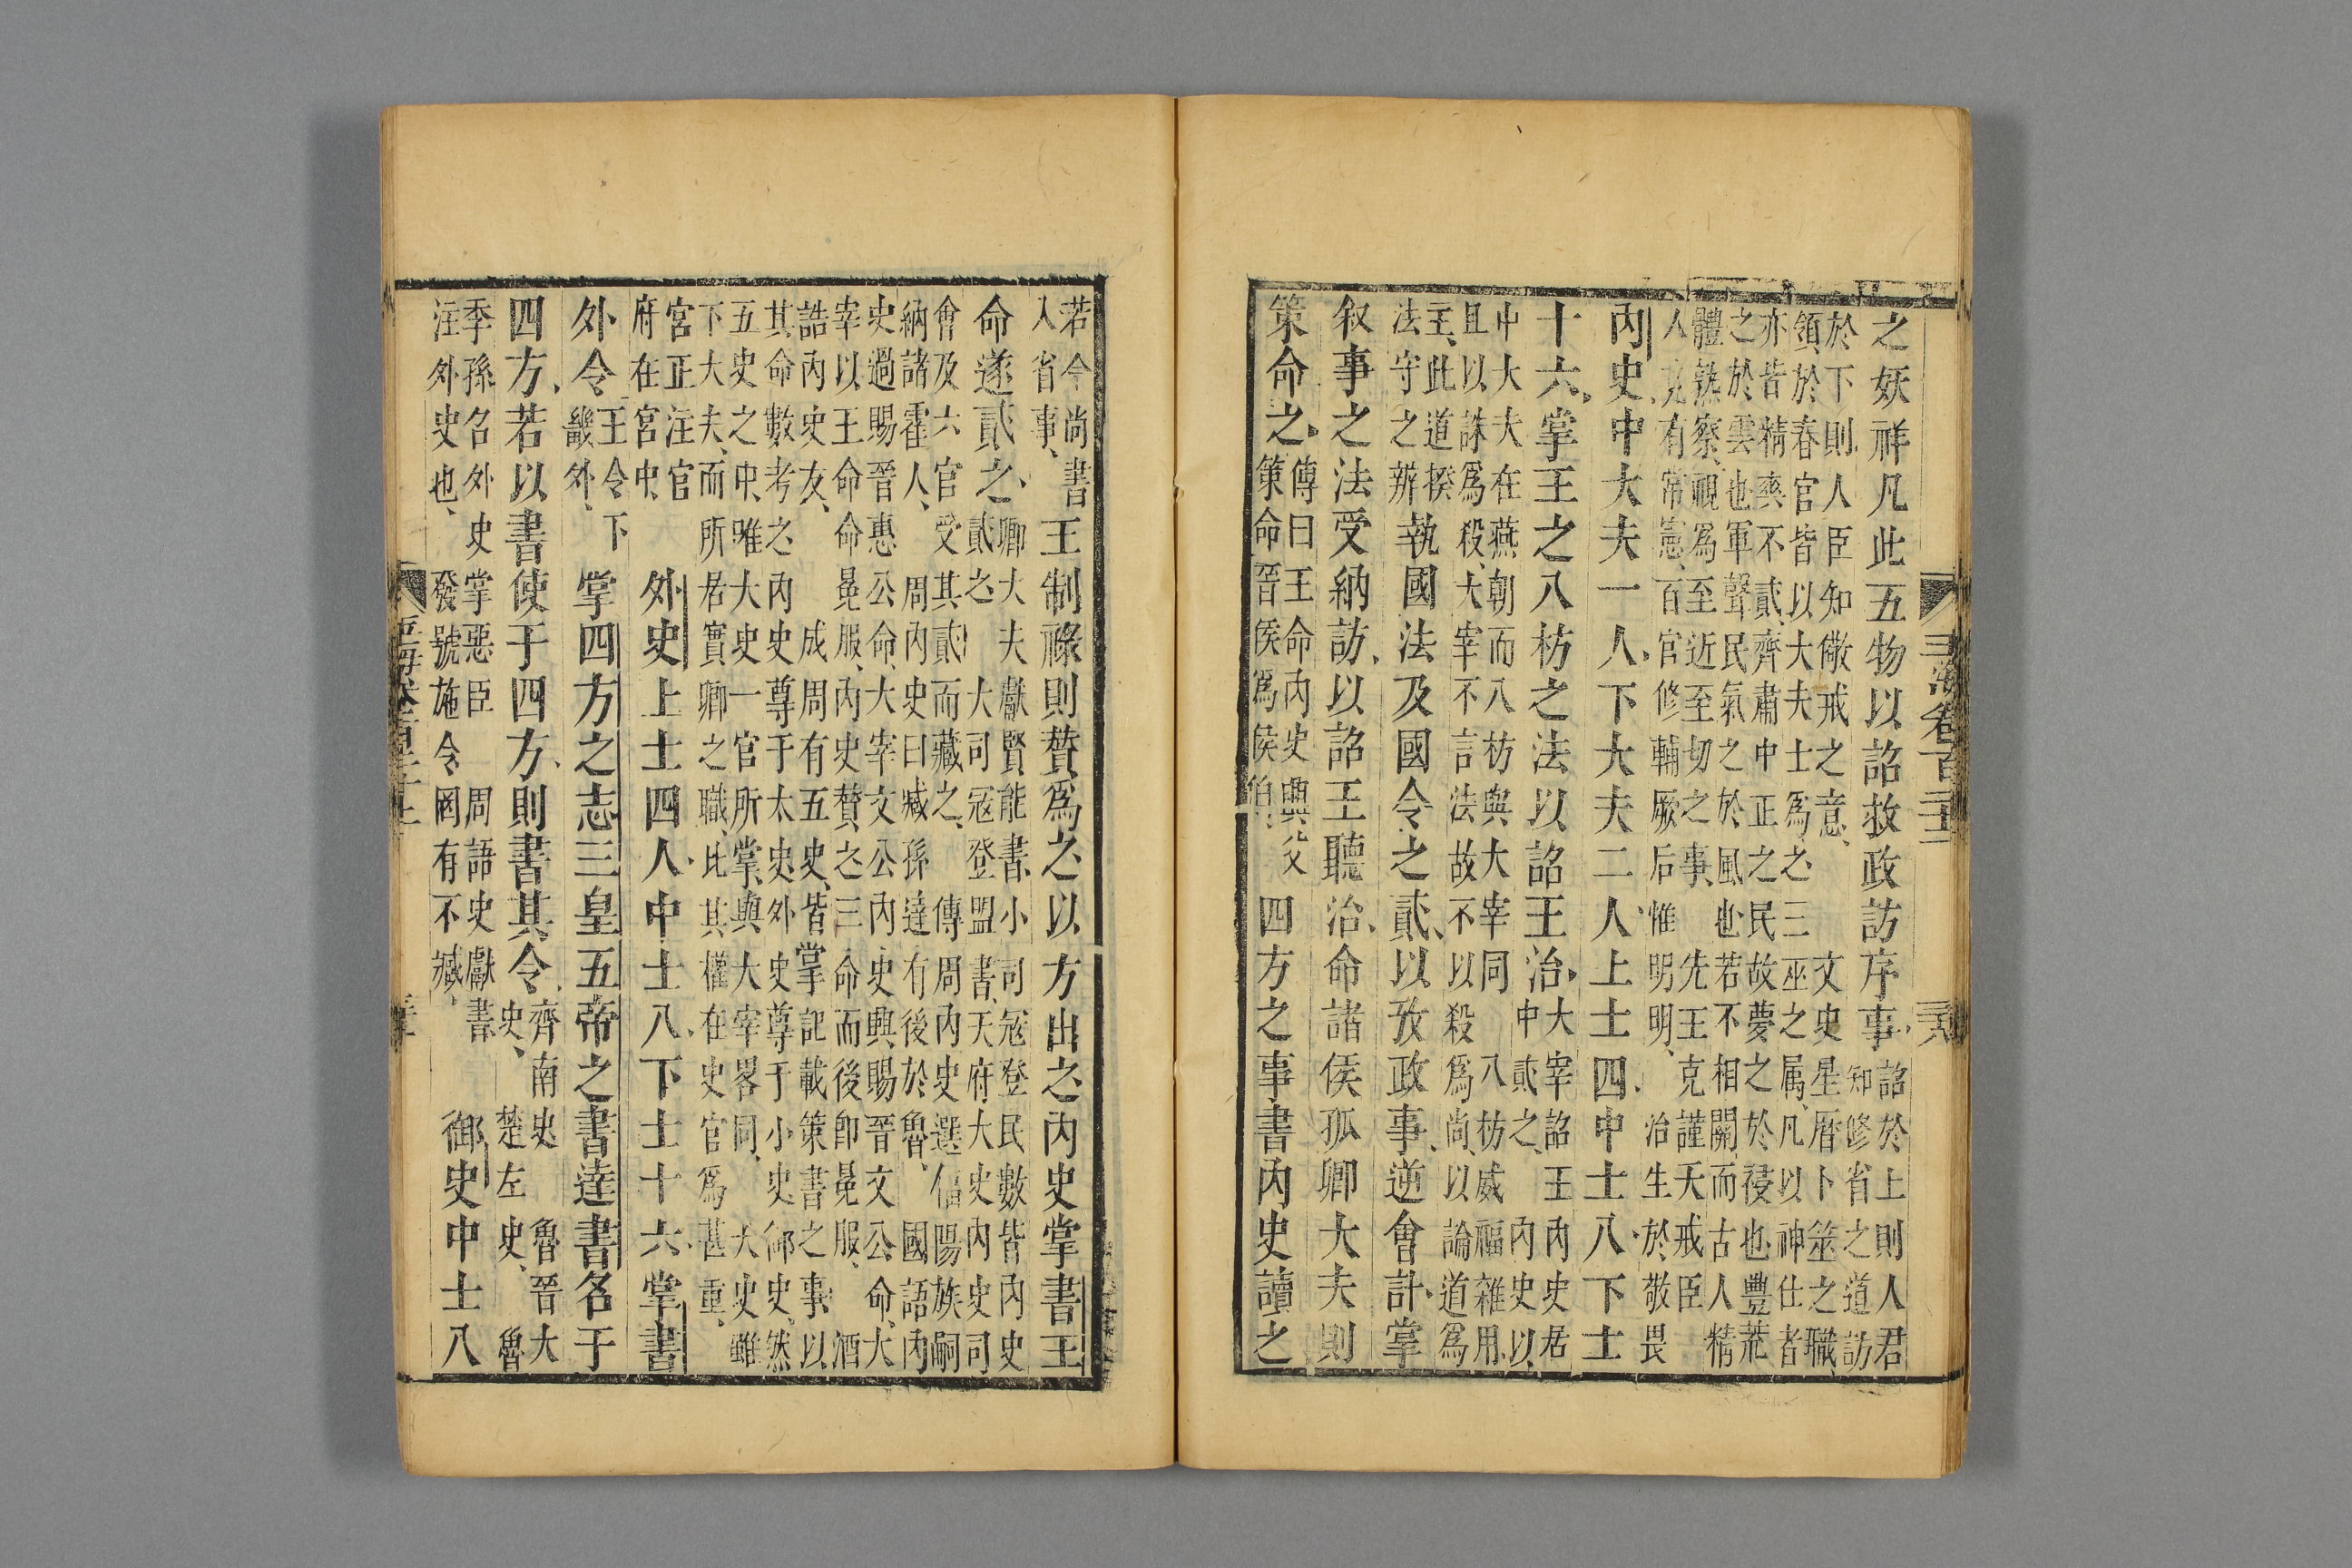 之妖祥凡此五物以詔救政訪序事詔於上則人君
知修省之道訪
於下則人臣知儆戒之意文史星曆卜筮之職
領於春官皆以大夫士為之三巫之属凡以神仕者
亦皆精爽不貳齊肅中正之民故夢之於祲也豐荒
之於雲也軍聲民氣之於風也若不相關而古人精
體熟察視為至近至切之事先王克謹天戒臣
人克有常憲百官修輔厥后惟明明治生於敬畏
內史中大夫一人下大夫二人上士四中士八下士
十六掌王之八枋之法以詔王治大宰詔王內史居
中貳之內史以
中大夫在燕朝而八枋與大宰同八枋威福雜用
且以誅為殺大宰不言法故不以殺為尚以論道為
主此道揆
法守之辨執國法及國令之貳以攷政事逆會計掌
叙事之法受納訪以詔王聽治命諸侯孤卿大夫則
策命之傳曰王命內史興父
策命晉侯為侯伯四方之事書內史讀之
若今尚書
入省事王制祿則贊為之以方出之內史掌書王
命遂貳之卿大夫獻賢能書小司冦登民數皆內史
貳之大司冦登盟書天府大史內史司
會及六官受其貳而藏之傳周內史選偪陽族嗣
納諸霍人周內史曰臧孫達有後於魯國語內
史過賜晉惠公命大宰文公內史興賜晉文公命大
宰以王命命冕服內史贊之三命而後卽冕服酒
誥內史友成周有五史皆掌記載策書之事以
其命數考之內史尊于太史外史尊于小史御史然
五史之中唯大史一官所掌與大宰畧同大史雖
下大夫而所居實卿之職比其權在史官為甚重
宮正注官
府在宮中外史上士四人中士八下士十六掌書
外令王令下
畿外掌四方之志三皇五帝之書達書名于
四方若以書使于四方則書其令齊南史魯晉大
史楚左史魯
季孫名外史掌惡臣周語史獻書
注外史也發號施令罔有不臧御史中士八